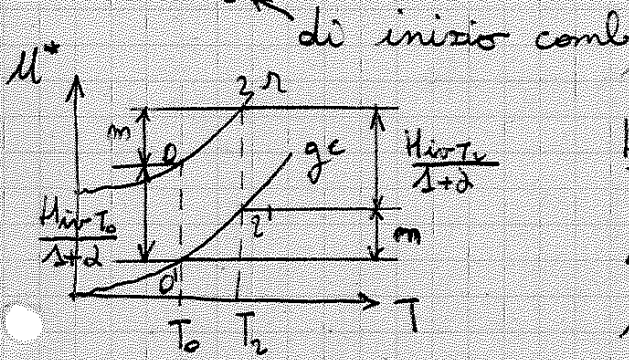 di inizio comb
U*
2 r
m
0
gc
Hiv T2
1+α
Hiv T0
1+α
2'
m
0'
T0
T2
T